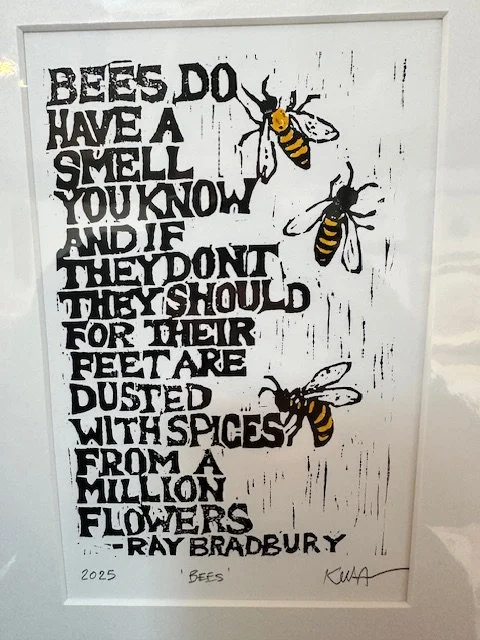 BEES DO
HAVE A
SMELL
YOU KNOW
AND IF
THEY DONT
THEY SHOULD
FOR THEIR
FEET ARE
DUSTED
WITH SPICES
FROM A
MILLION
FLOWERS
--RAY BRADBURY
2025 'BEES'